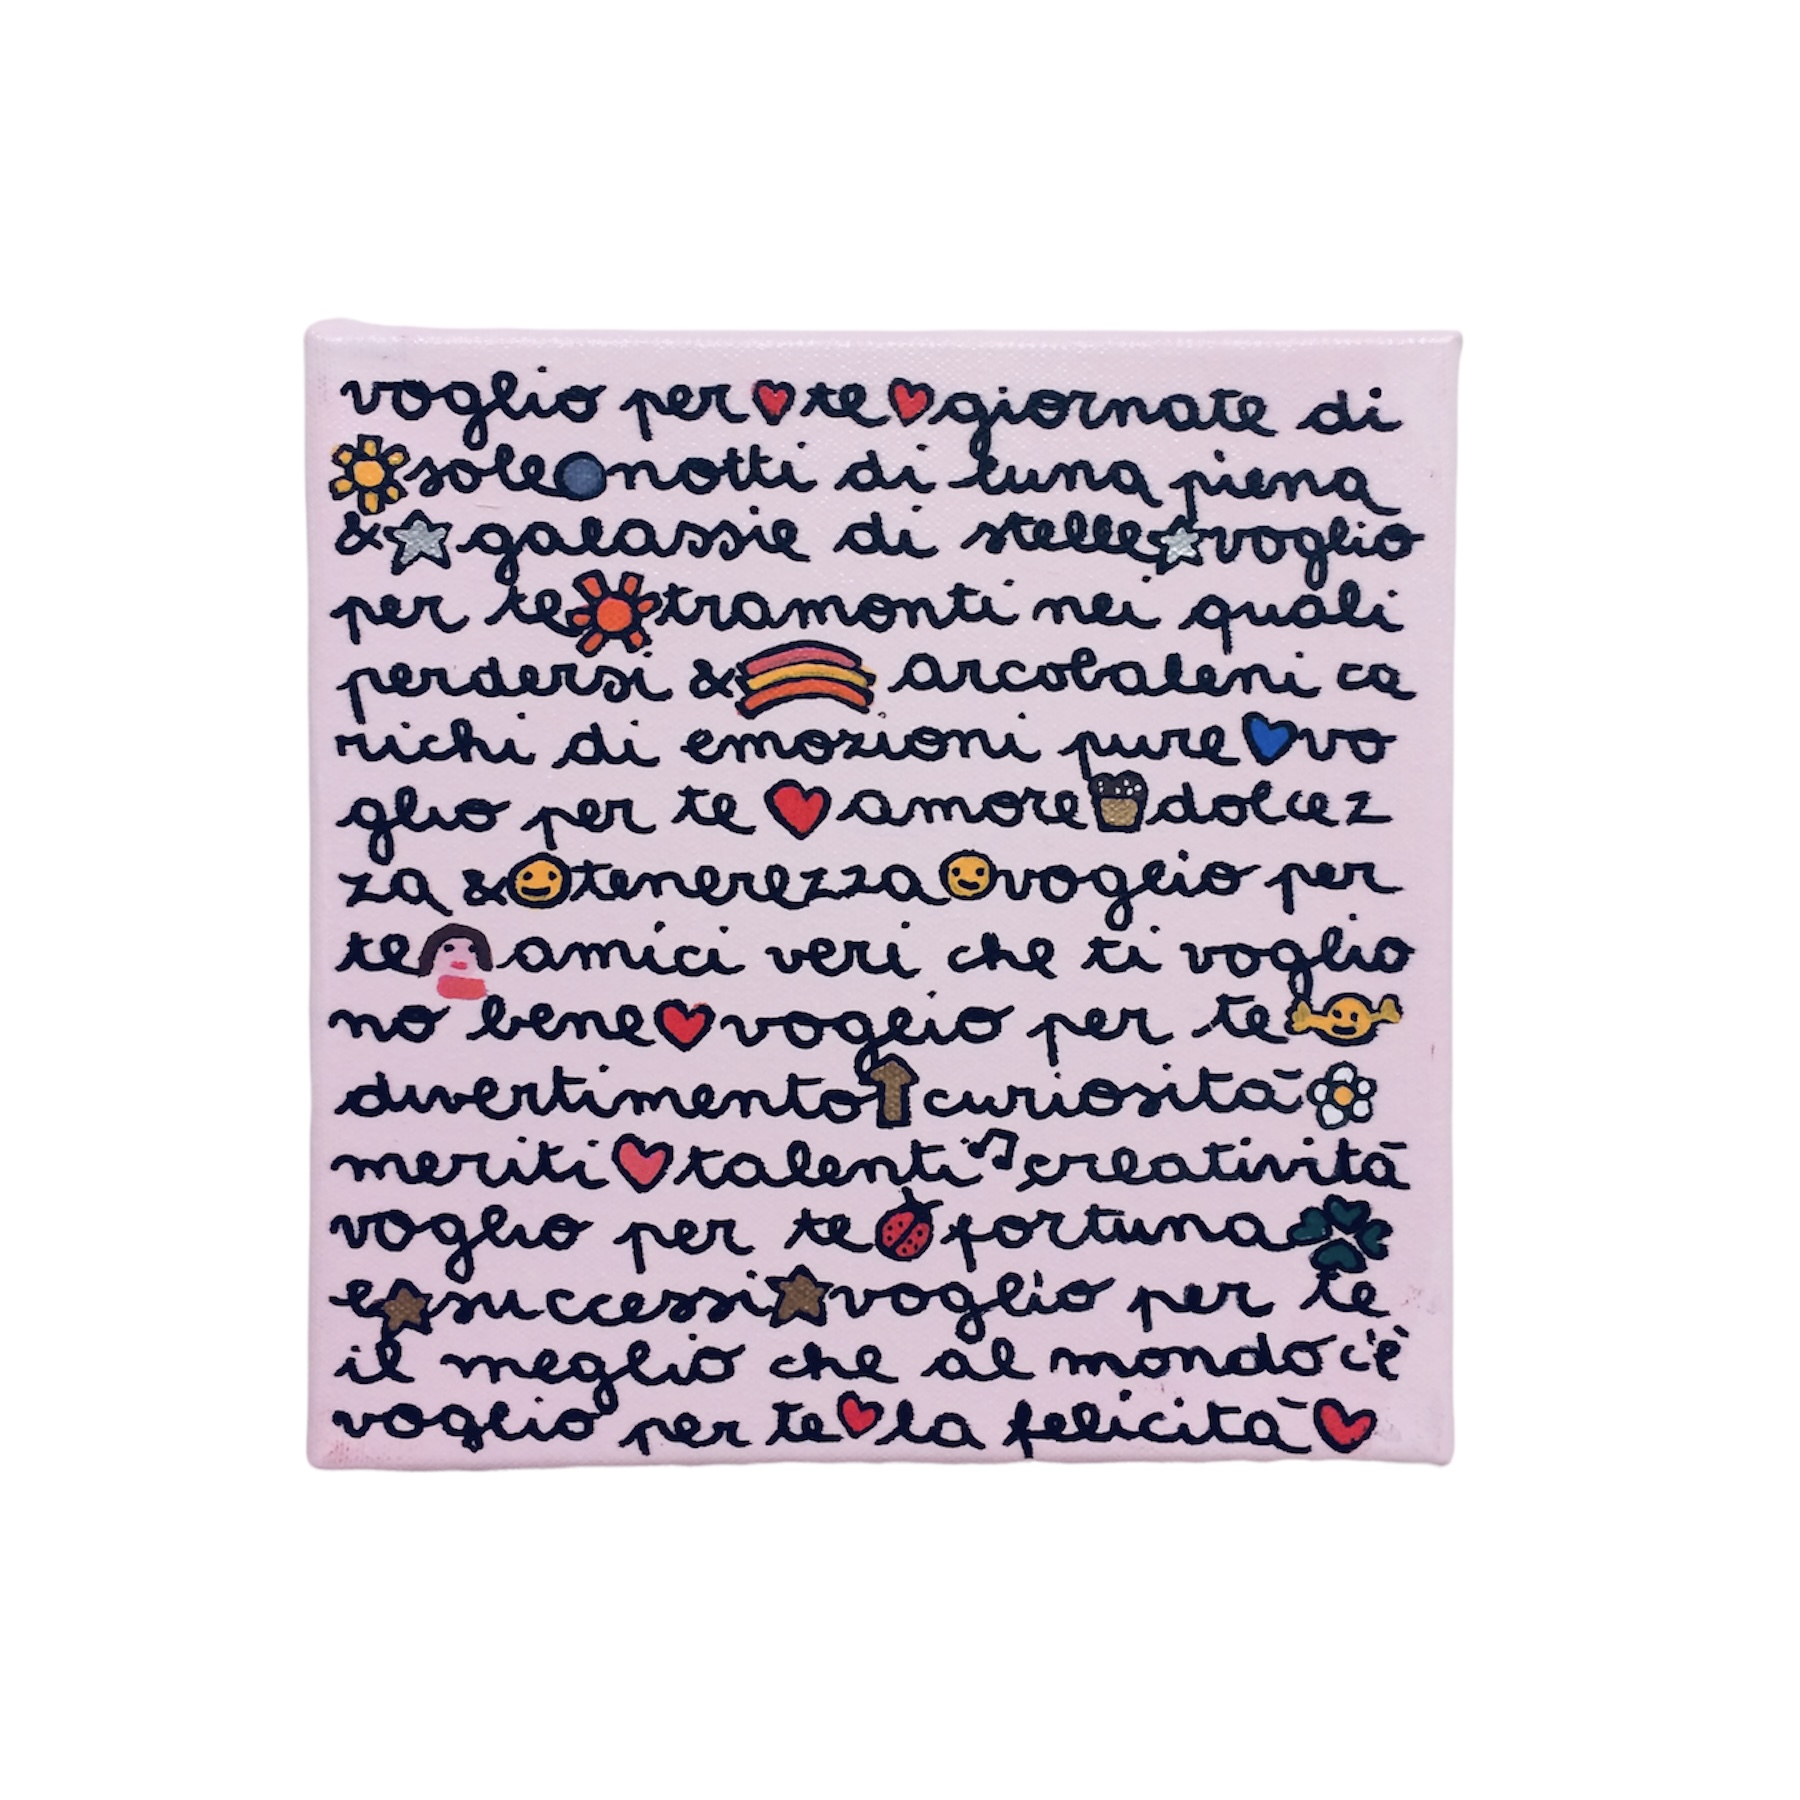 voglio per te giornate di
sole notti di luna piena
& galassie di stelle voglio
per te tramonti nei quali
perdersi & arcobaleni ca
richi di emozioni pure vo
glio per te amore dolcez
za & tenerezza voglio per
te amici veri che ti voglio
no bene voglio per te
divertimento curiosità
meriti talenti creatività
voglio per te fortuna
e successi voglio per te
il meglio che al mondo c'è
voglio per te la felicità